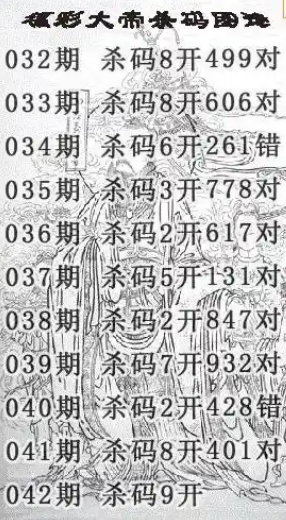 福彩大帝杀码图
032期 杀码8开499对
033期 杀码8开606对
034期 杀码6开261错
035期 杀码3开778对
036期 杀码2开617对
037期 杀码5开131对
038期 杀码2开847对
039期 杀码7开932对
040期 杀码2开428错
041期 杀码8开401对
042期 杀码9开